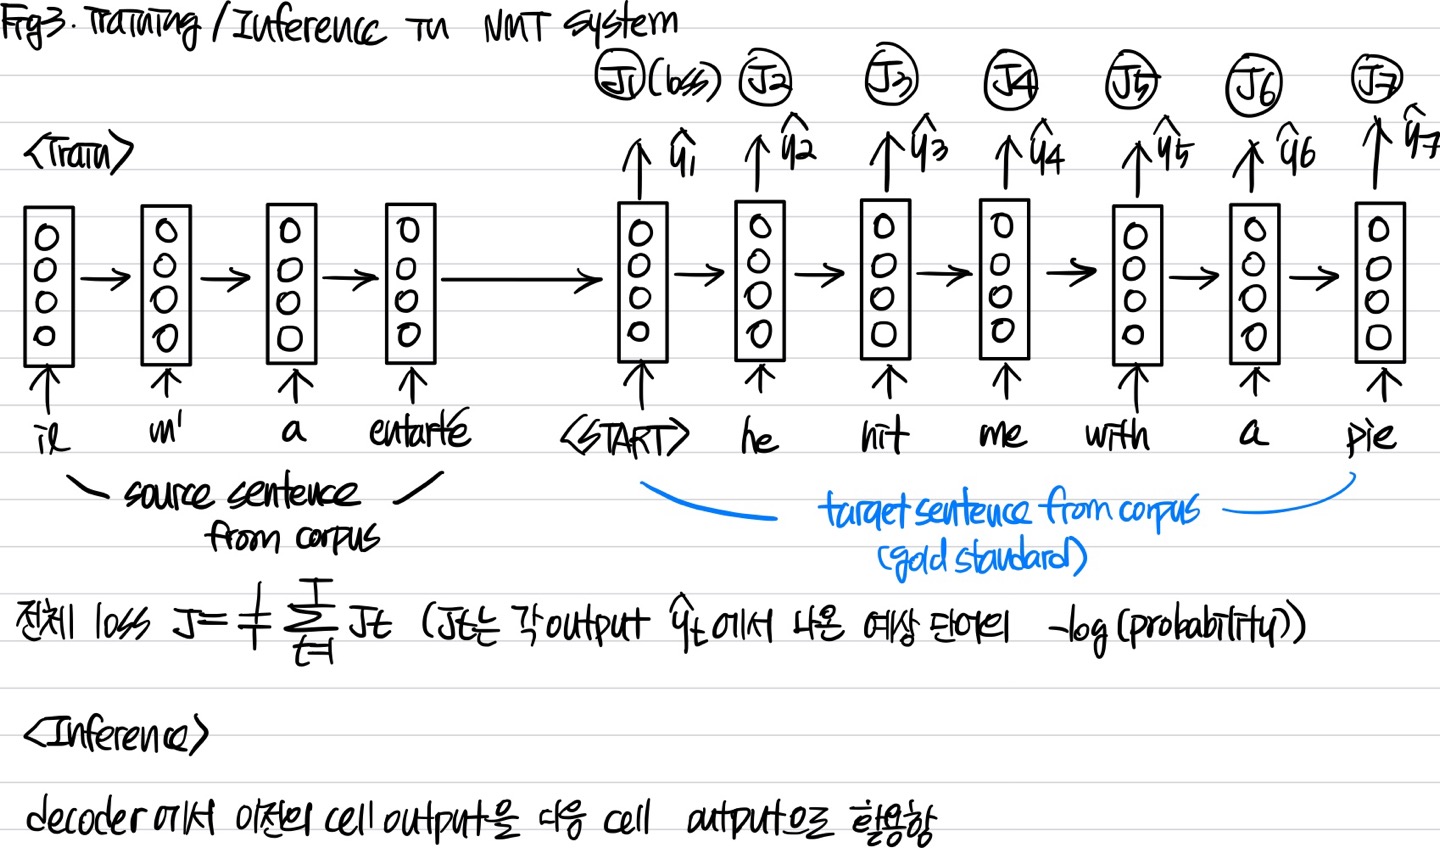 Fig3. Training / Inference in NMT system
J1 (loss) J2 J3 J4 J5 J6 J7
<Train>
ŷ1 ŷ2 ŷ3 ŷ4 ŷ5 ŷ6 ŷ7
il m' a entarté <START> he hit me with a pie
source sentence
from corpus
target sentence from corpus
(gold standard)
전체 loss J = 1/T Σ_{t=1}^{T} Jt (Jt는 각 output ŷt에서 나온 예상 단어의 -log(probability))
<Inference>
decoder에서 이전의 cell output을 다음 cell output으로 활용함